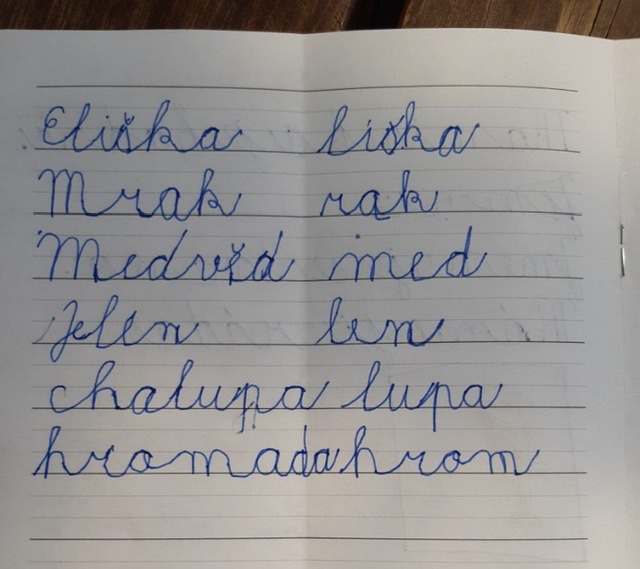 Eliška liška
Mrak rak
Medvěd med
Jelen len
chalupa lupa
hromada hrom